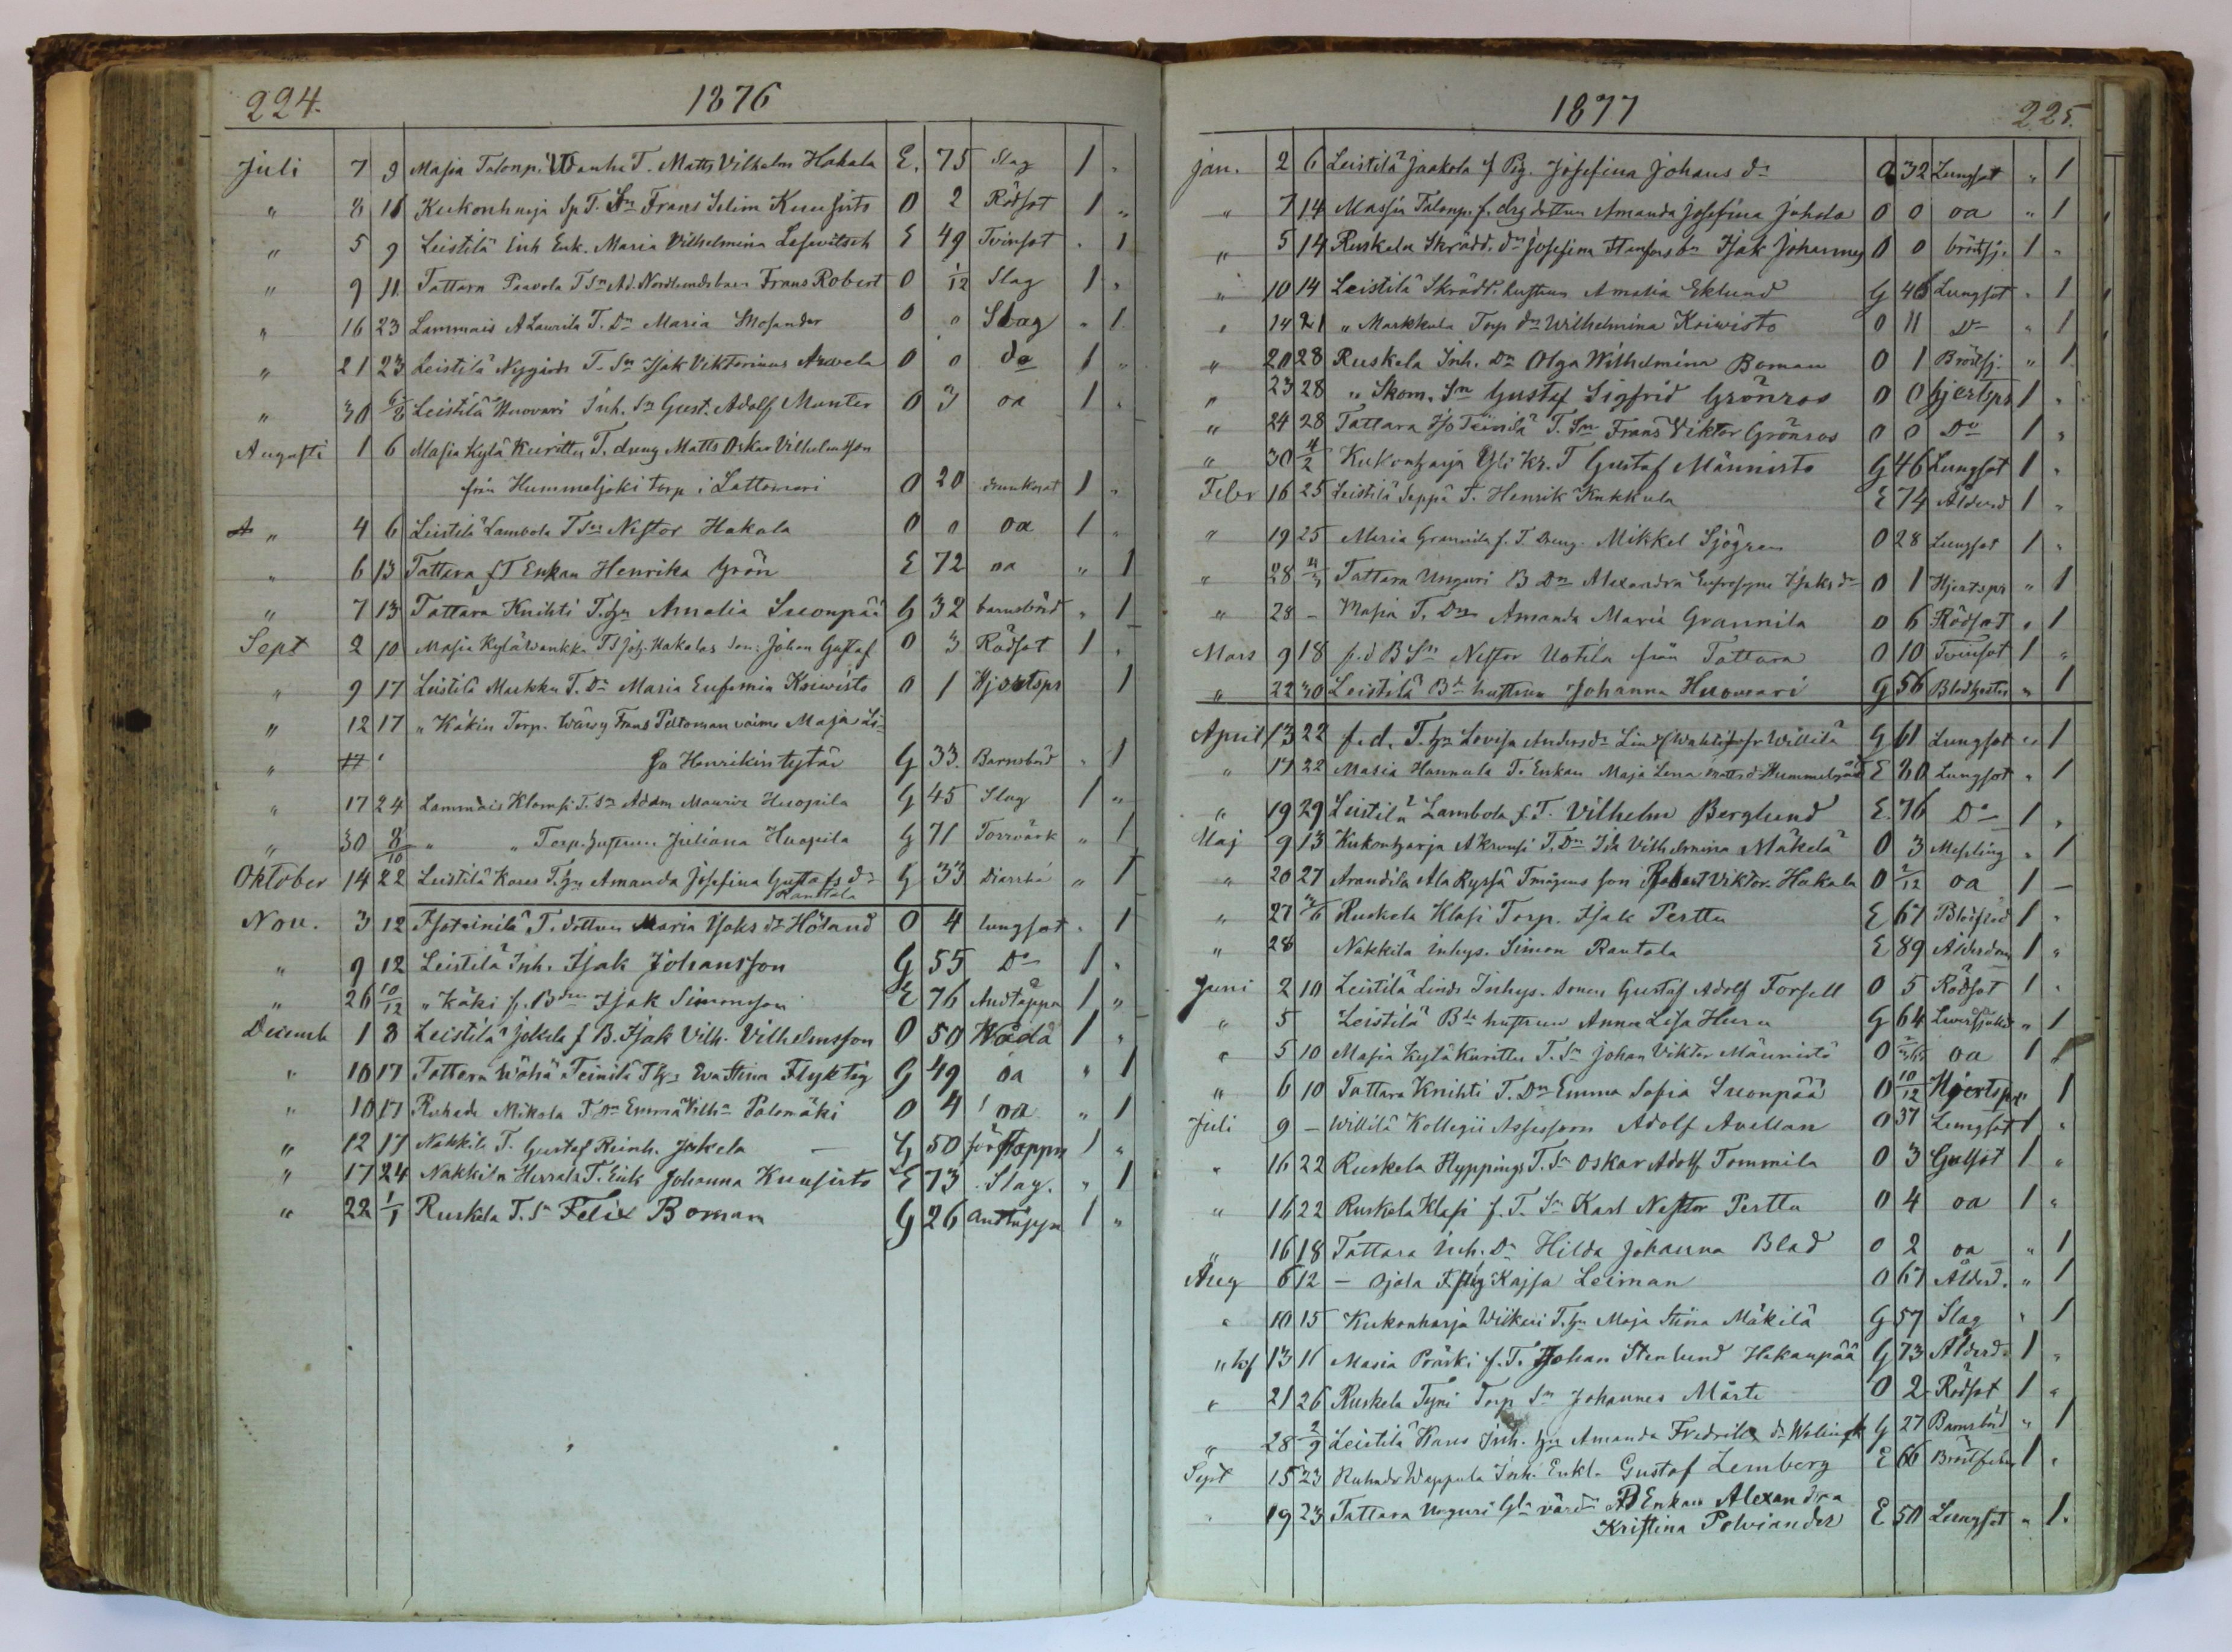 224. 1876
Juli 7 9 Masia Talonp. Wanha T. Matts Vilhelm Hakala E. 75 Slag 1 „
„ 8 11 Kukonharja Sp T. Sn Frans Selim Kuusisto O 2 Rödsot 1 „
„ 5 9 Leistilä Inh Enk. Maria Vilhelmina E 49 Tvinsot „ 1
„ 9 11 Tattara Paavola T Sn Ad. Nordlunds barn Frans Robert O 1/12 Slag 1 „
„ 16 23 Lammais ALaurila T. Dr Maria Mosander O 0 Slag „ 1
„ 21 23 Leistilä Nygårds T. Sn Isak Viktorinus Arvela O 0 do 1 „
„ 30 6/8 Leistilä Huovari Inh. Sn Gust. Adolf Munter O 3 oa 1 „
Augusti 1 6 Masia Kylä Kurittu T. dreng Matts Oskar Vilhelmsson
från Hummeljoki torp i Lattomeri O 20 drunknat 1 „
„ 4 6 Leistilä Lambola T Sn Nestor Hakala O 0 oa 1 „
„ 6 13 Tattara f T Enkan Henrika Grön E 72 oa „ 1
„ 7 13 Tattara Knihti T. hu Amalia Suonpää G 32 barnsbörd „ 1
Sept 2 10 Masia Kylä Wankka T I Joh. Hakalas son: Johan Gustaf O 3 Rödsot 1 „
„ 9 17 Leistilä Markku T. Dr Maria Eufemia Koiwisto O 1 Hjertspr 1
„ 12 17 „ Käkin Torp. Wäwy Frans Peltoman vaimo Maja Li-
„ sa Henrikin tytär G 33. Barnsbörd „ 1
„ 17 24 Lammais Klomsi T. Sn Adam Mauriz Huopila G 45 Slag 1 „
„ 30 8/10 „ „ Torp. hustrun Juliana Huopila G 71 Torrvärk „ 1
Oktober 14 22 Leistilä Kares T. hu Amanda Josefina Gustafs dr G 33 diarrhé „ 1
Rauttala
Nov. 3 12 Isoteinilä T. dottren Maria Isaks dr Höland O 4 lungsot „ 1
„ 9 12 Leistilä Inh. Isak Johansson G 55 Do 1 „
„ 26 10/12 „ Käki f. Bden Isak Simonsson E 76 Andtäppa 1 „
Decemb 1 8 Leistilä Jakola f B. Isak Vilh. Vilhelmsson O 50 Wåda 1 „
„ 10 17 Tattara Wähä Teinilä T hu Eva Stina Flyktig G 49 oa „ 1
„ 10 17 Ruhade Mikola T Dr Emma Vilha Palomäki O 4 oa „ 1
„ 12 17 Nakkila T. Gustaf Reinh. Jakola G 50 förstoppn 1 „
„ 17 24 Nakkila Herrala T. Enk Johanna Kuusisto E 73 Slag. „ 1
„ 22 1/1 Ruskela T. Sn Felix Boman G 26 Andtäppa 1 „
1877 225.
Jan. 2 6 Leistilä Jaakola f Pig. Josefina Johans dr O 32 Lungsot „ 1
„ 7 14 Massia Talonp. f. drg dottren Amanda Josefina Juhola O 0 oa „ 1
„ 5 14 Ruskela Skrädd. dr Josefina Stenfors bn Isak Johannes O 0 bröstsj. 1 „
„ 10 14 Leistilä Skrädd. hustrun Amalia Eklund G 46 Lungsot „ 1
„ 14 21 „ Markkula Torp drs Wilhelmina Koiwisto O 11 Do „ 1
„ 20 28 Ruskela Inh. Dr Olga Wilhelmina Boman O 1 Bröstsj. „ 1
„ 23 28 „ Skom. Sn Gustaf Sigfrid Grönros O 0 hjertspr 1 „
„ 24 28 Tattara Iso Teinilä T. Sn Frans Viktor Grönros O 0 Do 1 „
„ 30 4/2 Kukonharja Yli Kr. T Gustaf Männistö G 46 Lungsot 1 „
Febr 16 25 Leistilä Seppä T. Henrik Kukkula E 74 Ålderd 1 „
„ 19 25 Masia Grannila f. T. Dreng. Mikkel Sjögren O 28 Lungsot 1 „
„ 28 4/3 Tattara Unguri B Dr Alexandra Eufrosyne Isaks dr O 1 Hjertspr „ 1
„ 28 – Masia T. Dr Amanda Maria Grannila O 6 Rödsot „ 1
Mars 9 18 f. d B Sn Nestor Uotila från Tattara O 10 Tvinsot 1 „
„ 22 30 Leistilä Bde hustrun Johanna Huowari G 56 „ 1
April 13 22 f. d. T. hu Lovisa Anders dr Lind Willilä G 61 Lungsot „ 1
„ 17 22 Masia Hannula T. Enkan Maja Lena Matts dr E 80 Lungsot „ 1
„ 19 29 Leistilä Lambola f. T. Vilhelm Berglund E. 76 Do 1 „
Maj 9 13 Kukonharja AKrouvi T. Dr Ida Vilhelmina Mäkelä O 3 Messling „ 1
„ 20 27 Arandila Ala Ryssä Tmågens son Robert Viktor Hakala O 2/12 oa 1 –
„ 27 Ruskela Klasi Torp. Isak Perttu E 67 Blodflod 1 „
„ 28 Nakkila inhys. Simon Rautala E 89 Ålderdom 1 „
Juni 2 10 Leistilä Linds Inhys. sonen Gustaf Adolf Forsell O 5 Rödsot 1 „
„ 5 Leistilä Bde hustrun Anna Lisa Huru G 64 „ 1
„ 5 10 Masia Kylä Kurittu T. Sn Johan Viktor Männistö O oa 1 „
„ 6 10 Tattara Knihti T. Dr Emma Sofia Suonpää O 10/12 Hjertspr „ 1
Juli 9 – Willilä Kollegii Assessorn Adolf Avellan O 37 Lungsot 1 „
„ 16 22 Ruskela Hyppings T. Sn Oskar Adolf Tommila O 3 Gulsot 1 „
„ 16 22 Ruskela Klasi f. T. Sn Karl Nestor Perttu O 4 oa 1 „
„ 16 18 Tattara Inh. Dr Hilda Johanna Blad O 2 oa „ 1
Aug 6 12 – Ojala F. Kajsa Leiman O 67 Ålderd. „ 1
„ 10 15 Kukonharja Wiikeri T. hu Maja Stina Mäkilä G 57 Slag „ 1
„ 13 16 Masia Präski f. T. Johan Stenlund Hakanpää G 73 Ålderd. 1 „
„ 21 26 Ruskela Tyni Torp Sn Johannes Märti O 2 Rödsot 1 „
„ 28 2/9 Leistilä Kares Inh. hu Amanda Fredrika dr G 27 Barnsbörd „ 1
Sept 15 23 Ruhade Wappula Inh. Enkl. Gustaf Lemberg E 66 Bröstfeber 1 „
„ 19 23 Tattara Unguri Gla värd B Enkan Alexandra
Kristina Polviander E 50 Lungsot „ 1.